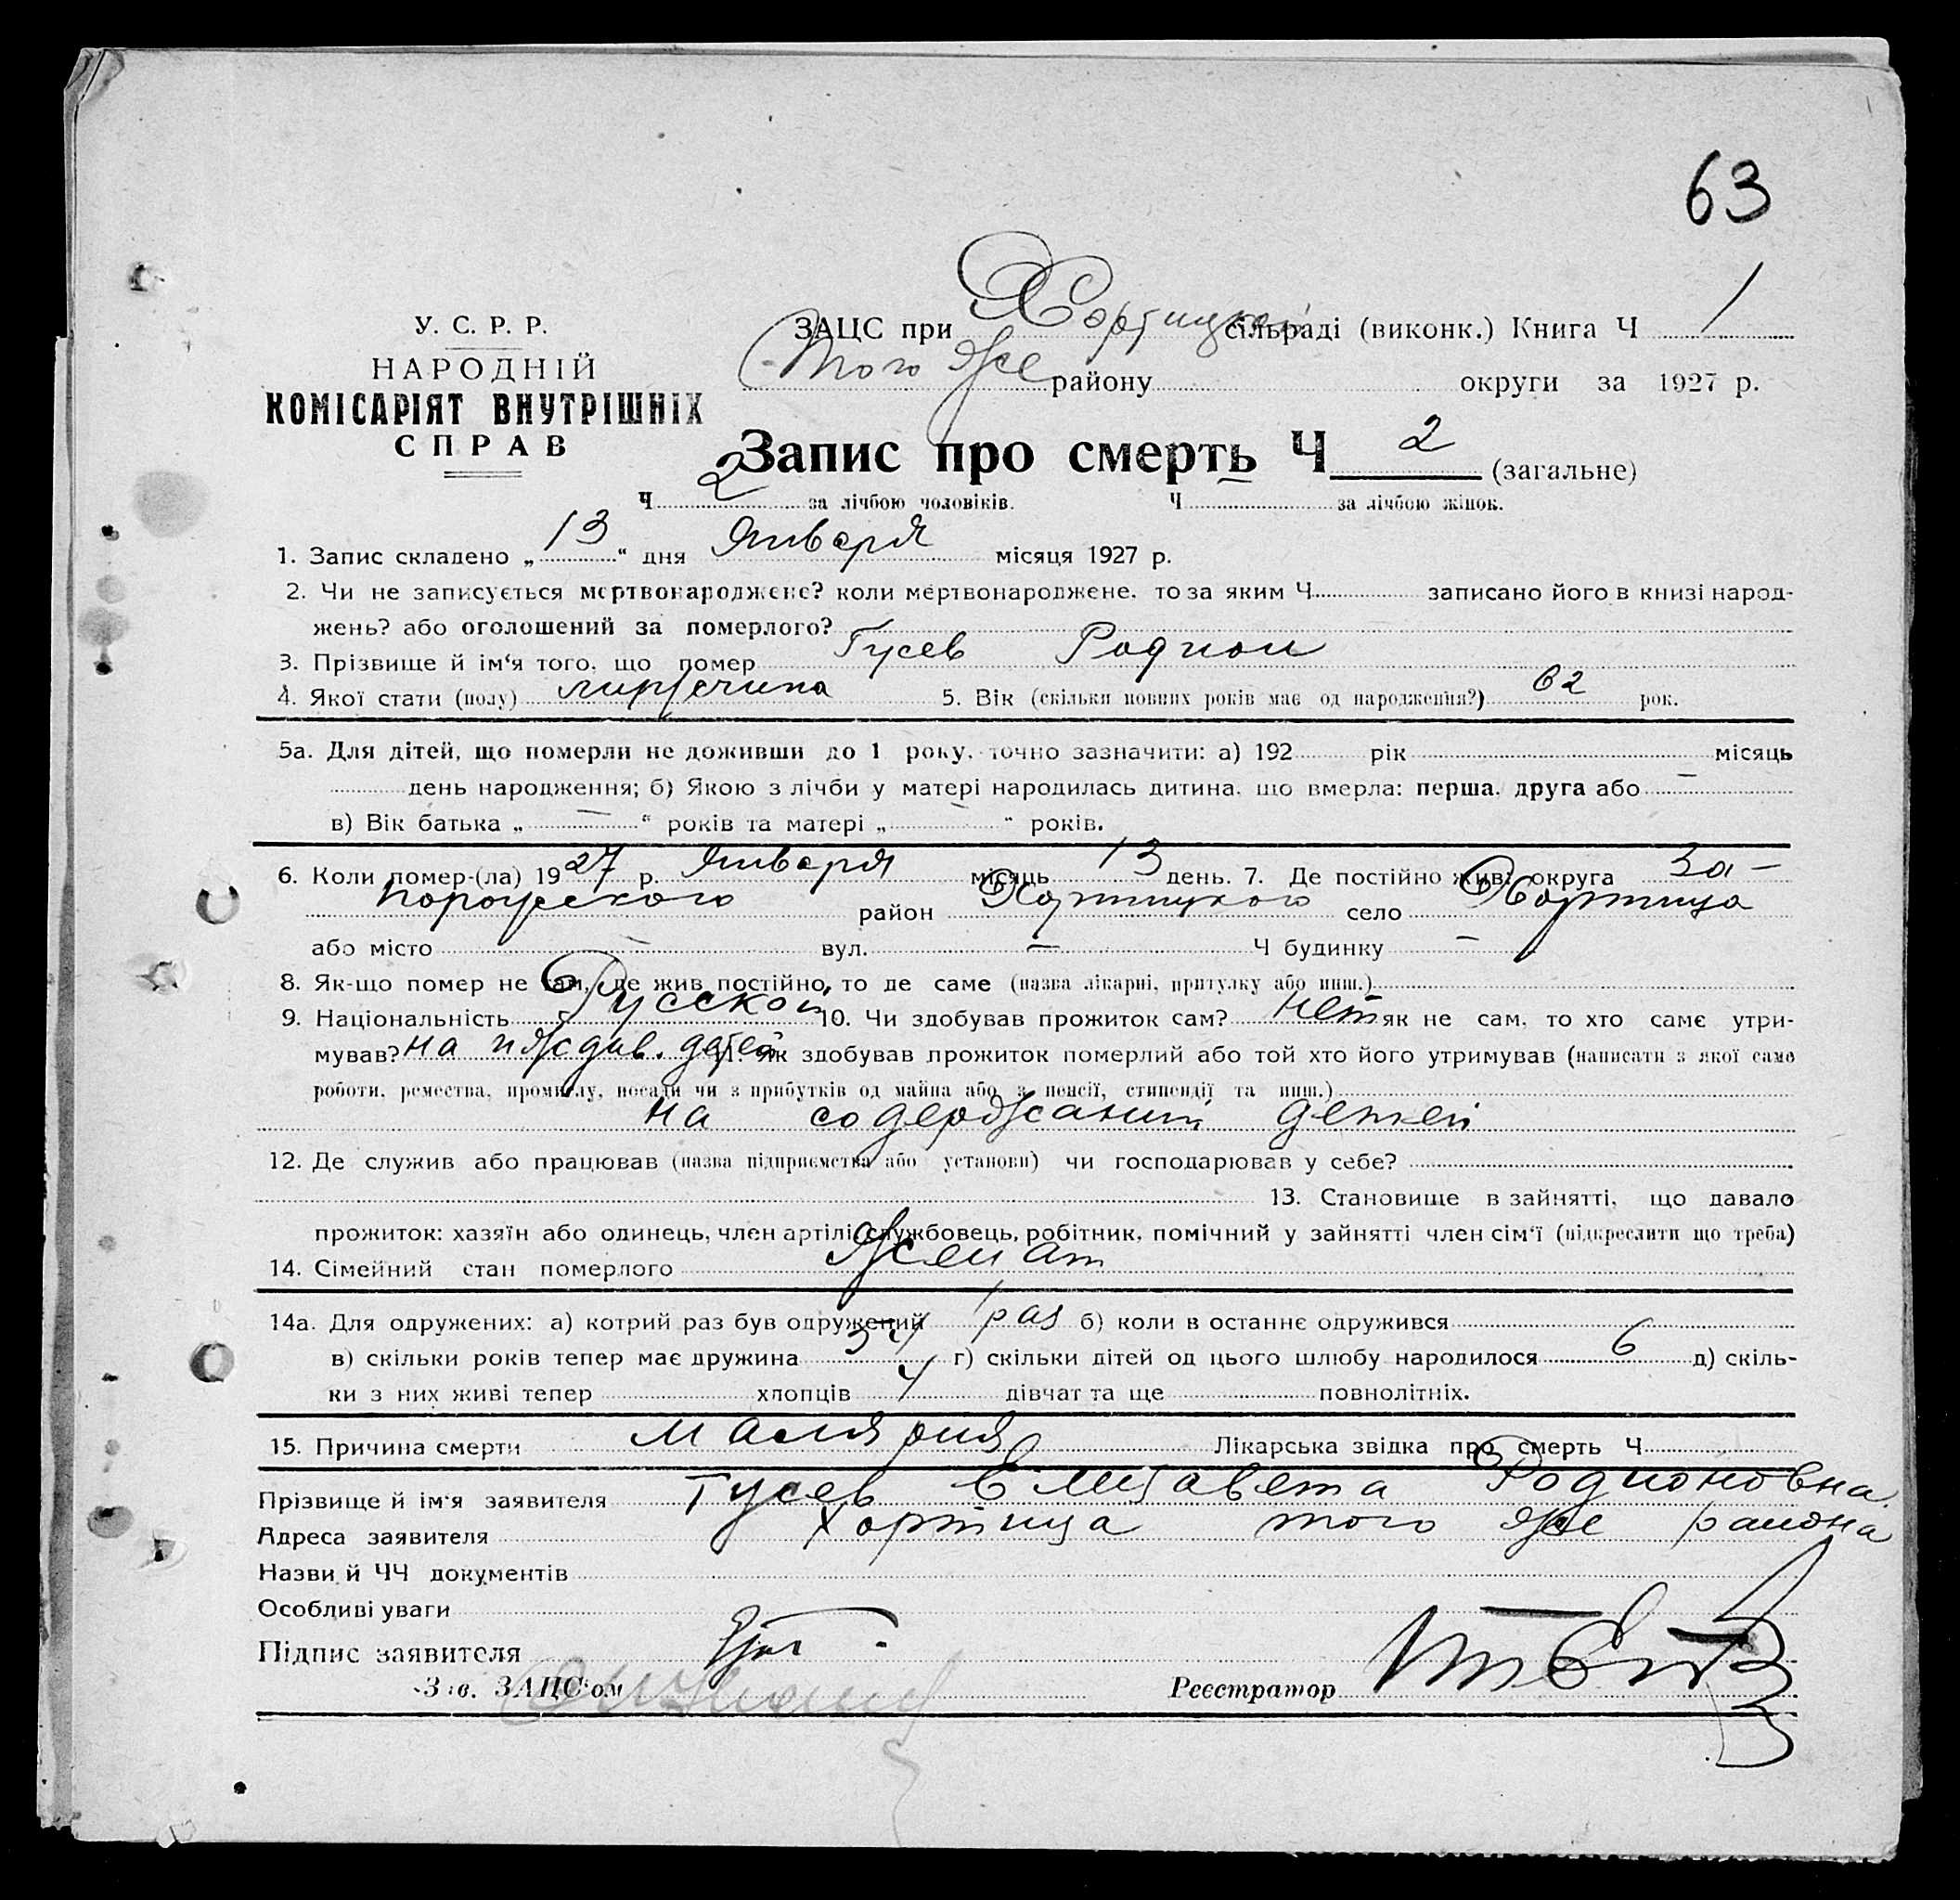 63
У. С. Р. Р.
НАРОДНІЙ
КОМІСАРІЯТ ВНУТРІШНІХ
СПРАВ
ЗАЦС при Хортицкой сільраді (виконк.) Книга Ч 1
того же району округи за 1927 р.
Запис про смерть Ч 2 (загальне)
Ч 2 за лічбою чоловіків. Ч за лічбою жінок.
1. Запис складено „ 13 “ дня Января місяця 1927 р.
2. Чи не записується мертвонароджене? коли мертвонароджене, то за яким Ч записано його в книзі народ-
жень? або оголошений за померлого?
3. Прізвище й ім'я того, що помер Гусев Родион
4. Якої стати (полу) мущчина 5. Вік (скільки повних років має од народження?) 62 рок.
5а. Для дітей, що померли не доживши до 1 року, точно зазначити: а) 192 рік місяць
день народження; б) Якою з лічби у матері народилась дитина, що вмерла: перша, друга або —
в) Вік батька „ — “ років та матері „ — “ років.
6. Коли помер-(ла) 1927 р. Января місяць 13 день. 7. Де постійно жив: округа За-
порожского район Хортицкого село Хортица
або місто — вул. — Ч будинку —
8. Як-що помер не там, де жив постійно, то де саме (назва лікарні, притулку або инш.)
9. Національність Русской 10. Чи здобував прожиток сам? нет як не сам, то хто саме утри-
мував? на иждив. детей 11. Як здобував прожиток померлий або той хто його утримував (написати з якої саме
роботи, ремества, промислу, посади чи з прибутків од майна або з пенсії, стипендії та инш.)
на содержании детей
12. Де служив або працював (назва підприємства або установи) чи господарював у себе?
13. Становище в зайнятті, що давало
прожиток: хазяїн або одинець, член артілі, службовець, робітник, помічний у зайнятті член сім'ї (підкреслити що треба)
14. Сімейний стан померлого Женат
14а. Для одружених: а) котрий раз був одружений 1 раз б) коли в останнє одружився
в) скільки років тепер має дружина г) скільки дітей од цього шлюбу народилося 6 д) скіль-
ки з них живі тепер хлопців 4 дівчат та ще повнолітніх.
15. Причина смерти Малярия Лікарська звідка про смерть Ч
Прізвище й ім'я заявителя Гусев Елизавета Родионовна
Адреса заявителя Хортица того же района
Назви й ЧЧ документів
Особливі уваги
Підпис заявителя
Зав. ЗАЦС'ом Реєстратор